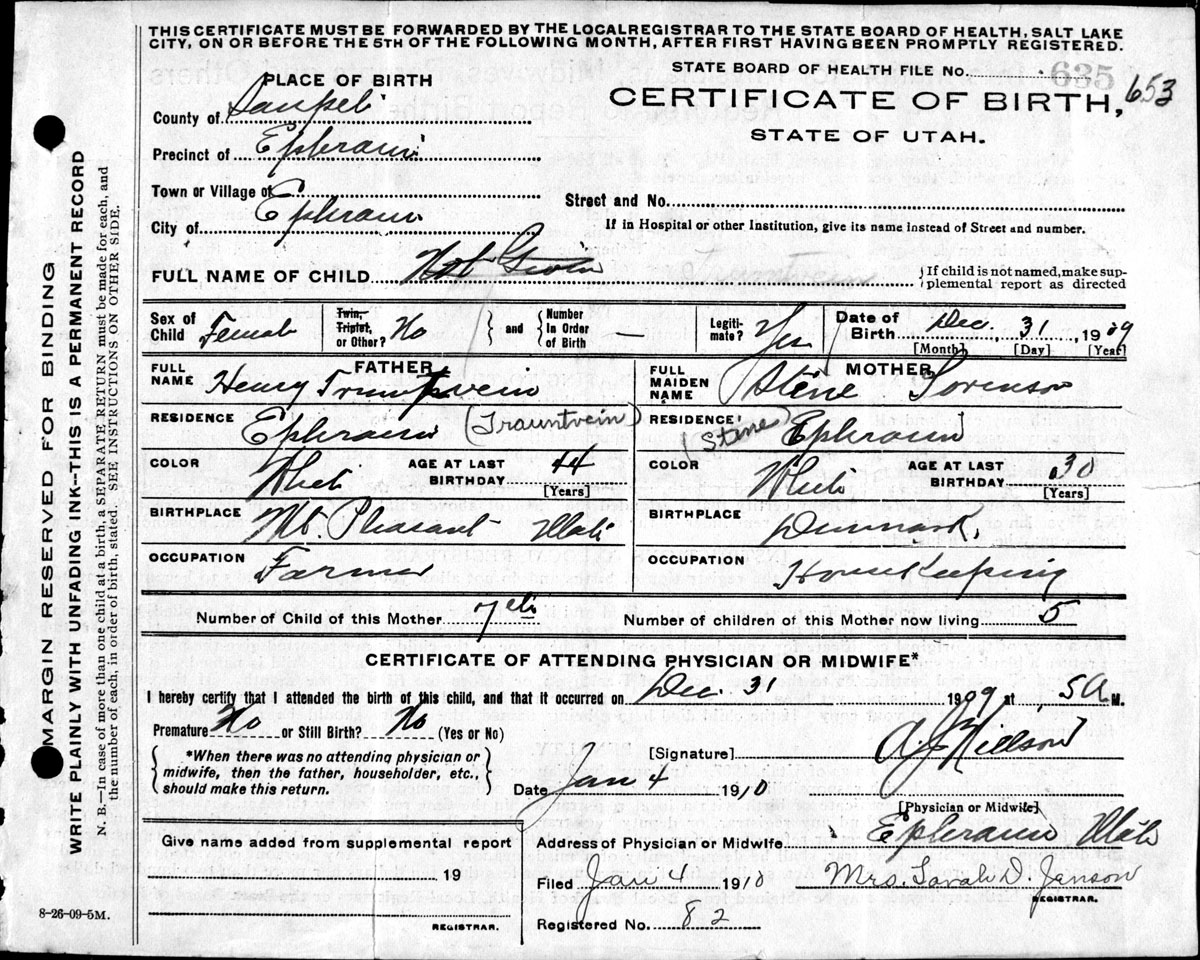 THIS CERTIFICATE MUST BE FORWARDED BY THE LOCALREGISTRAR TO THE STATE BOARD OF HEALTH, SALT LAKE
CITY, ON OR BEFORE THE 5TH OF THE FOLLOWING MONTH, AFTER FIRST HAVING BEEN PROMPTLY REGISTERED.
PLACE OF BIRTH
STATE BOARD OF HEALTH FILE No. 635
County of Sanpete
CERTIFICATE OF BIRTH, 653
STATE OF UTAH.
Precinct of Ephraim
Town or Village of
Street and No.
City of Ephraim
If in Hospital or other Institution, give its name instead of Street and number.
FULL NAME OF CHILD Not Given Trauntvein
{If child is not named, make sup-
plemental report as directed
Sex of Child Female
Twin, Triplet, or Other? No
and
Number In Order of Birth —
Legiti-mate? Yes
Date of Birth Dec. 31, 1909
[Month] [Day] [Year]
FATHER
FULL NAME Henry Trauntvein
RESIDENCE Ephraim (Trauntvein)
COLOR White
AGE AT LAST BIRTHDAY 44
[Years]
BIRTHPLACE Mt. Pleasant Utah
OCCUPATION Farmer
MOTHER
FULL MAIDEN NAME Stine Sorenson
RESIDENCE (Stine) Ephraim
COLOR White
AGE AT LAST BIRTHDAY 30
[Years]
BIRTHPLACE Denmark
OCCUPATION Housekeeping
Number of Child of this Mother 7th
Number of children of this Mother now living 5
CERTIFICATE OF ATTENDING PHYSICIAN OR MIDWIFE*
I hereby certify that I attended the birth of this child, and that it occurred on Dec. 31 1909 at 5 A M.
Premature No or Still Birth? No (Yes or No)
*When there was no attending physician or
midwife, then the father, householder, etc.,
should make this return.
[Signature] A J Nielson
Date Jan 4 1910
[Physician or Midwife]
Give name added from supplemental report
19
REGISTRAR.
Address of Physician or Midwife Ephraim Utah
Filed Jan 4 1910 Mrs. Sarah D. Jenson
REGISTRAR.
Registered No. 82
8-26-09-5M.
MARGIN RESERVED FOR BINDING
WRITE PLAINLY WITH UNFADING INK--THIS IS A PERMANENT RECORD
N. B.—In case of more than one child at a birth, a SEPARATE RETURN must be made for each, and
the number of each, in order of birth, stated. SEE INSTRUCTIONS ON OTHER SIDE.